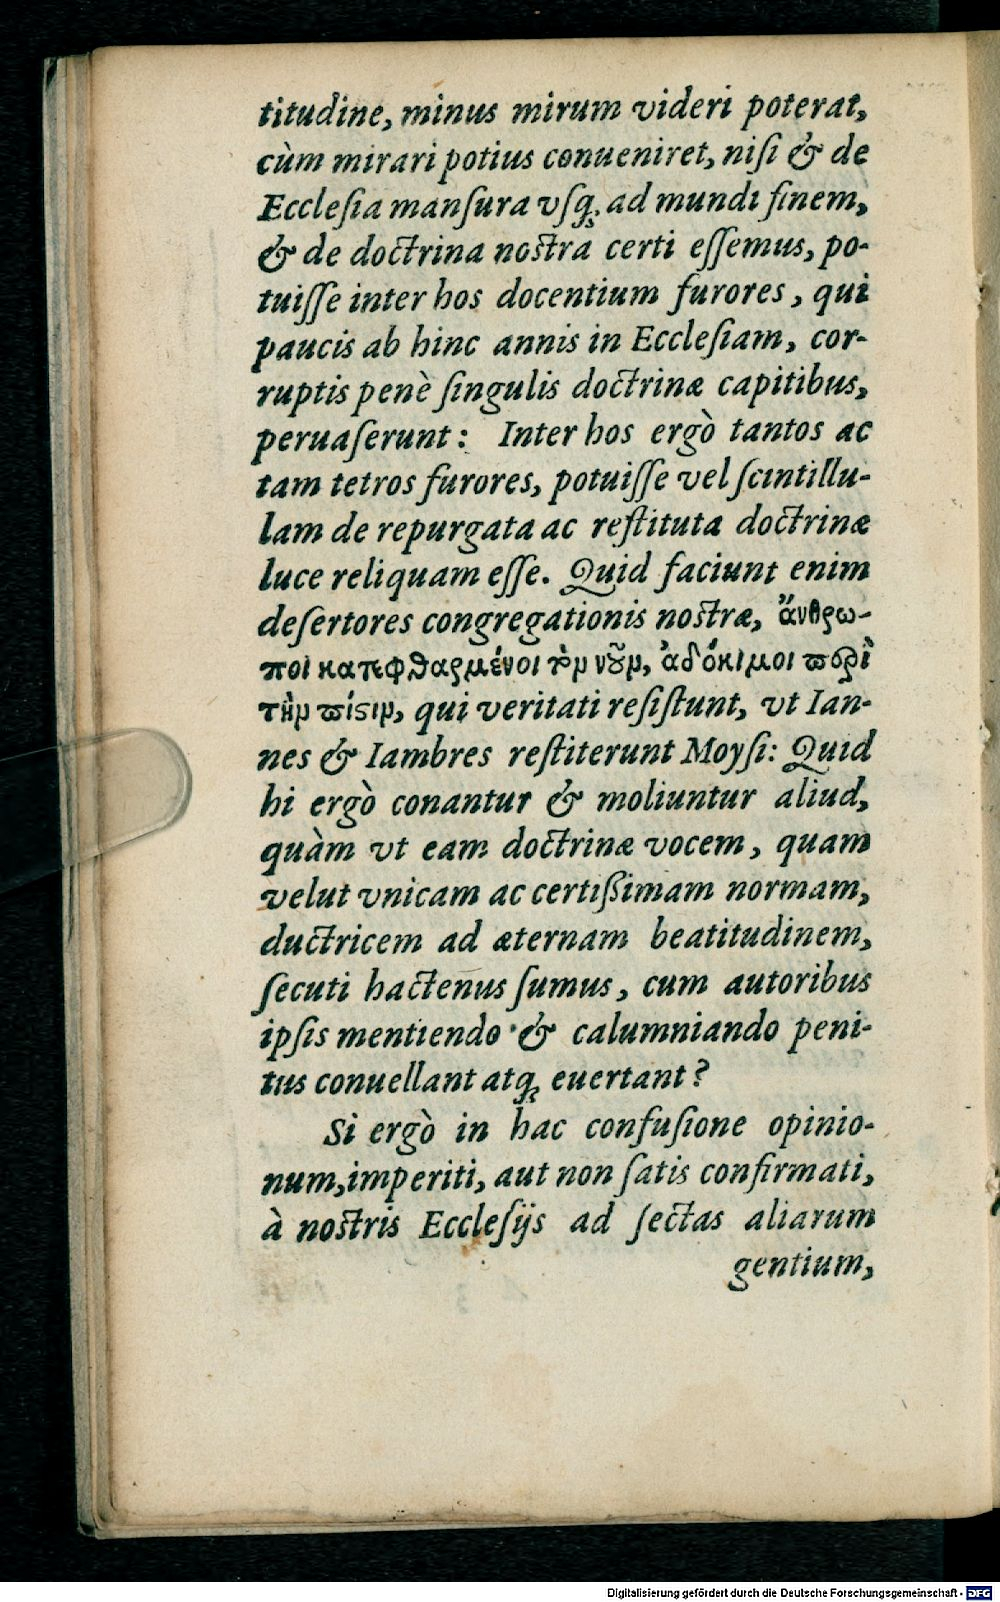 titudine, minus mirum videri poterat,
cùm mirari potius conueniret, niſi & de
Eccleſia manſura vſq́; ad mundi finem,
& de doctrina noſtra certi eſſemus, po-
tuiſſe inter hos docentium furores, qui
paucis ab hinc annis in Eccleſiam, cor-
ruptis penè ſingulis doctrinæ capitibus,
peruaſerunt: Inter hos ergò tantos ac
tam tetros furores, potuiſſe vel ſcintillu-
lam de repurgata ac reſtituta doctrinæ
luce reliquam eſſe. Quid faciunt enim
deſertores congregationis noſtræ, ἄνθρω-
ποι κατεφθαρμένοι τὸν νοῦν, ἀδόκιμοι περὶ
τὴν πίστιν, qui veritati reſiſtunt, vt Ian-
nes & Iambres reſtiterunt Moyſi: Quid
hi ergò conantur & moliuntur aliud,
quàm vt eam doctrinæ vocem, quam
velut vnicam ac certißimam normam,
ductricem ad æternam beatitudinem,
ſecuti hactenus ſumus, cum autoribus
ipſis mentiendo & calumniando peni-
tus conuellant atq; euertant?
Si ergò in hac confuſione opinio-
num, imperiti, aut non ſatis confirmati,
à noſtris Eccleſijs ad ſectas aliarum
gentium,
Digitalisierung gefördert durch die Deutsche Forschungsgemeinschaft - DFG